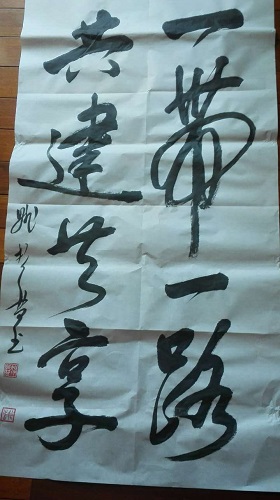 一带一路
共建共享